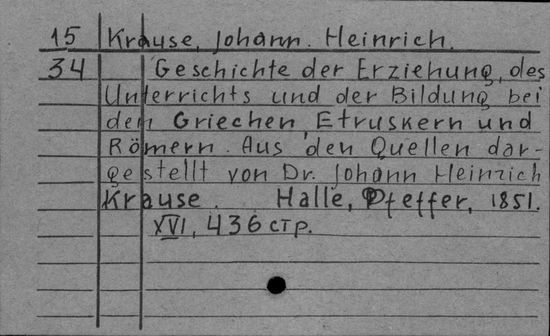 15 Krause, Johann. Heinrich.
34 Geschichte der Erziehung, des
Unterrichts und der Bildung bei
den Griechen, Etruskern und
Römern. Aus den Quellen dar-
gestellt von Dr. Johann Heinrich
Krause. Halle, Pfeffer, 1851.
XVI, 436 стр.